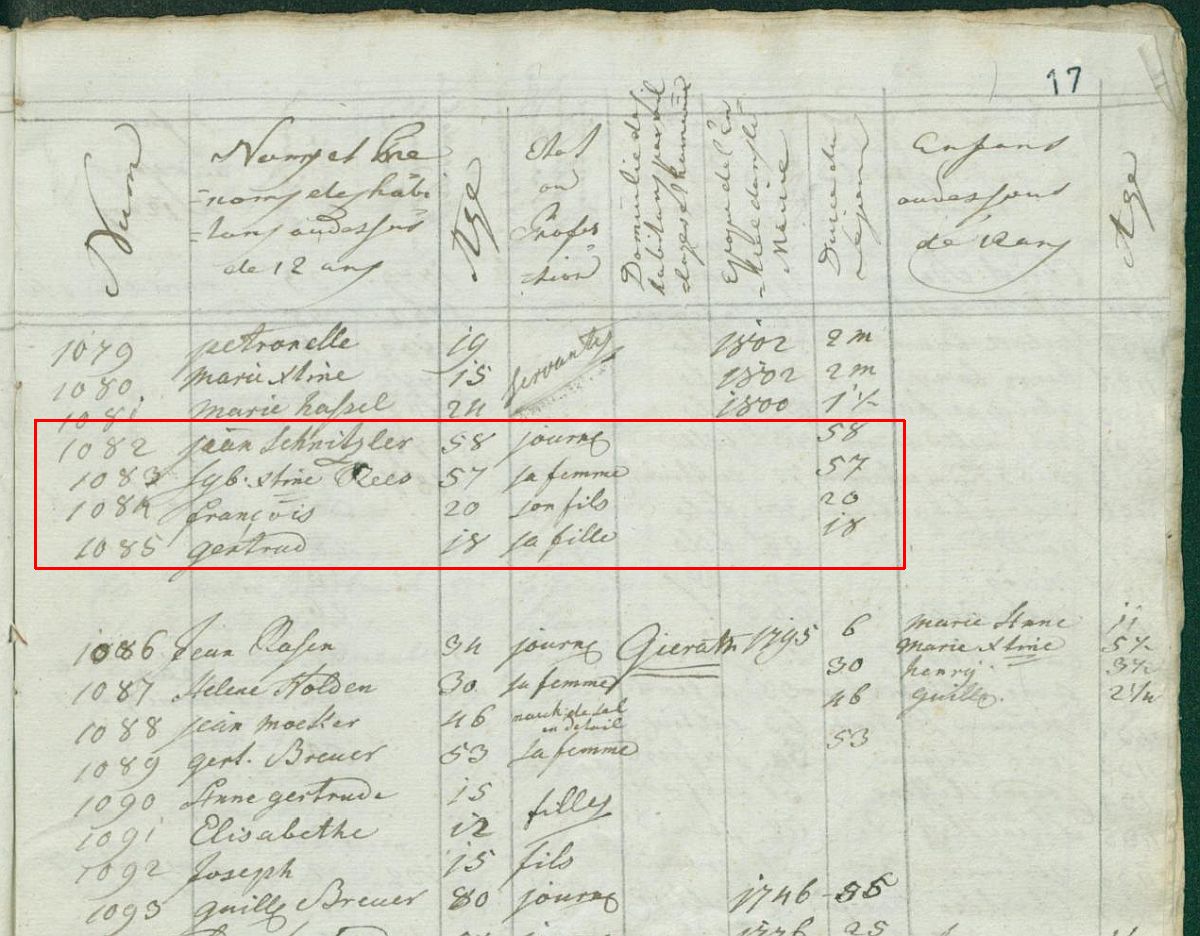 17
Num
Noms et Pré
=noms des habi
=tans au dessus
de 12 ans
Age
Etat
ou
Profes
=sion
Domicile des
Epoque de l'En
=trée dans la
Mairie
Durée du
séjour
Enfans
au dessous
de 12 ans
Age
1079 petronelle 19 servantes 1802 2 m
1080 marie Xtine 15 1802 2 m
1081 marie hassel 24 1800 1 1/2
1082 jean schnitzler 58 journ 58
1083 syb. Xtine Rees 57 sa femme 57
1084 françois 20 son fils 20
1085 gertrud 18 sa fille 18
1086 Jean Rasen 34 journ Gierath 1795 6 marie Anne 11
1087 Helene Holden 30 sa femme 30 marie Xtine 5 1/2
henry 3 1/2
1088 jean moeker 46 march. de sel en detail 46 guill. 2 1/4
1089 gert. Breuer 53 sa femme 53
1090 Anne gertrude 15 filles
1091 Elisabethe 12
1092 Joseph 15 fils
1093 guill Breuer 80 journ 1746 - 55
1776 25